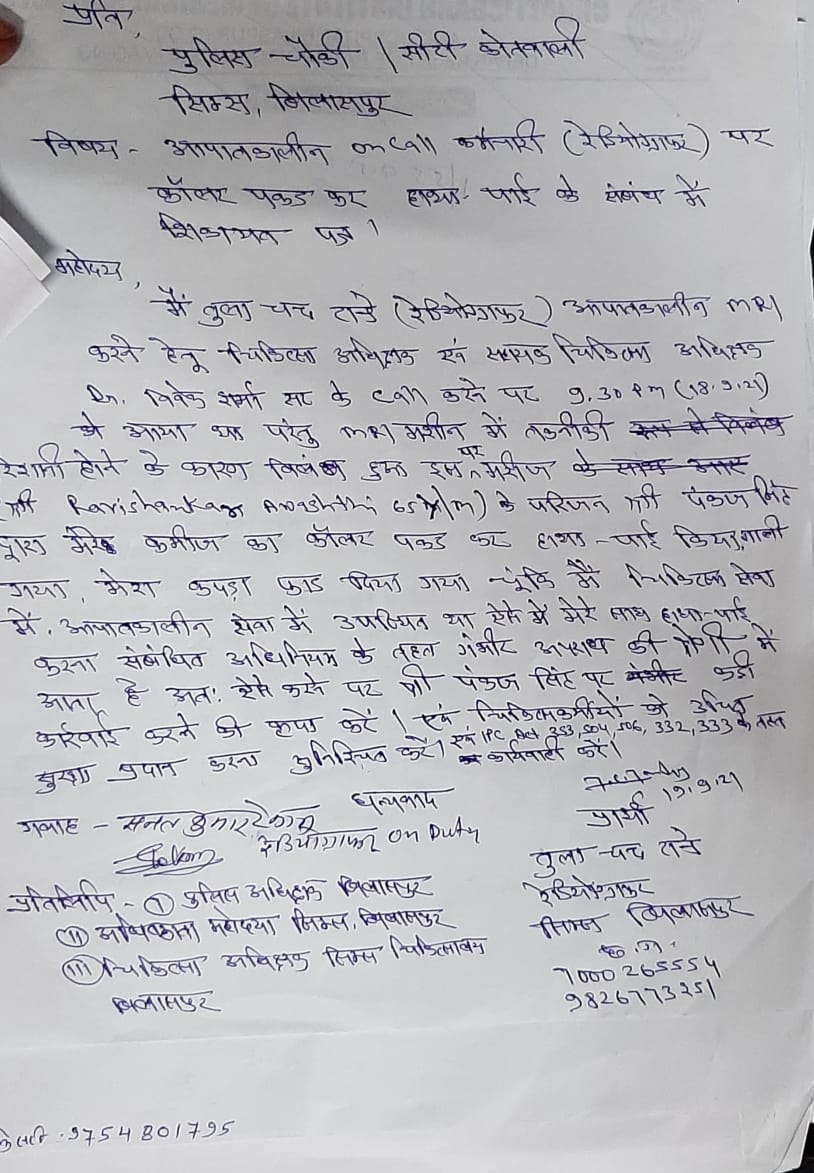 प्रति,
पुलिस चौकी / सीटी कोतवाली
सिम्स, बिलासपुर
विषय - आपातकालीन on call कर्मचारी (रेडियोग्राफर) पर
कॉलर पकड कर हाथा-पाई के संबंध में
शिकायत पत्र।
महोदय,
मैं तुला चन्द टान्डे (रेडियोग्राफर) आपातकालीन MRI
करने हेतू चिकित्सा अधिक्षक एवं सहायक चिकित्सा अधिक्षक
Dr. विवेक शर्मा सर के call करने पर 9.30 PM (18.9.21)
को आया था परंतु MRI मशीन में तकनीकी
होने के कारण विलंब हुआ इस पर मरीज
श्री Ravishankar Awasthi 65Y(M) के परिजन श्री पंकज सिंह
द्वारा मेरे कमीज का कॉलर पकड कर हाथा-पाई किया, गाली
गया, मेरा कपड़ा फाड दिया गया चूंकि मैं चिकित्सा सेवा
में, आपातकालीन सेवा में उपस्थित था ऐसे में मेरे साथ हाथा-पाई
करना संबंधित अधिनियम के तहत गंभीर अपराध की श्रेणी में
आता है अतः ऐसे करने पर श्री पंकज सिंह पर कडी
कार्रवाई करने की कृपा करें। एवं चिकित्साकर्मीयों को उचित
सुरक्षा प्रदान करना सुनिश्चित करें। एवं IPC Act 353, 504, 506, 332, 333 के तहत
कार्यवाही करें।
धन्यवाद
19.9.21
गवाह - सनत कुमार
रेडियोग्राफर on Duty
प्रार्थी
तुला चन्द टान्डे
रेडियोग्राफर
सिम्स बिलासपुर
छ.ग.
7000265554
9826773251
प्रतिलिपि - (I) पुलिस अधिक्षक बिलासपुर
(II) अधिष्ठाता महोदया सिम्स, बिलासपुर
(III) चिकित्सा अधिक्षक सिम्स चिकित्सालय
बिलासपुर
9754801795